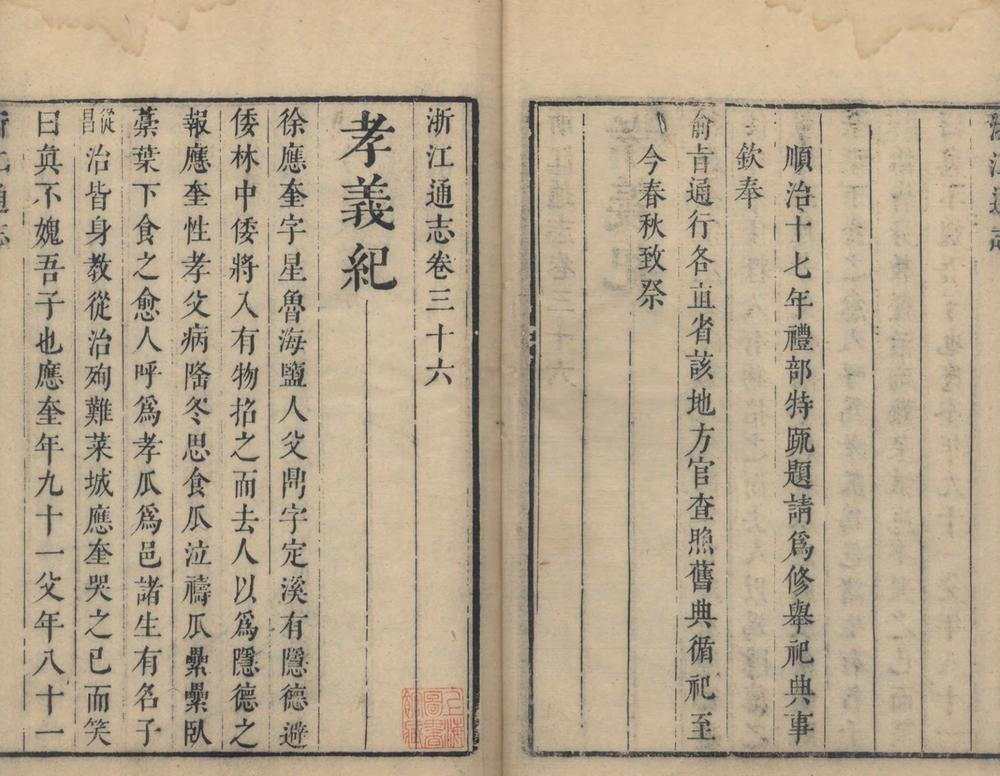 順治十七年禮部特疏題請爲修舉祀典事
欽奉
俞㫖通行各直省該地方官查照舊典循祀至
今春秋致祭
浙江通志卷三十六
孝義紀
徐應奎字星魯海鹽人父鼎字定溪有隱德避
倭林中倭將入有物掐之而去人以爲隱德之
報應奎性孝父病隆冬思食瓜泣禱瓜纍纍臥
藁葉下食之愈人呼爲孝瓜爲邑諸生有名子
從
昌
治皆身教從治殉難萊城應奎哭之已而笑
曰眞不媿吾子也應奎年九十一父年八十一